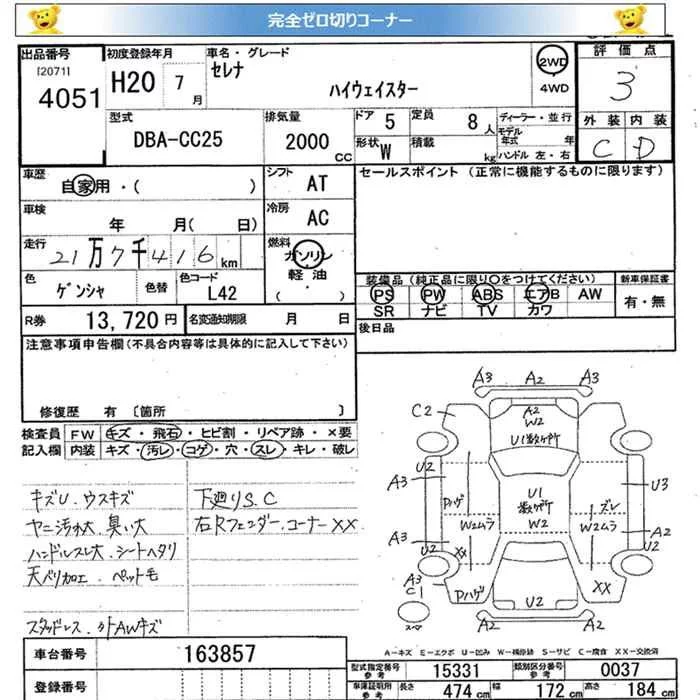 完全ゼロ切りコーナー
出品番号 [2071] 4051
初度登録年月 H20 7月
車名・グレード セレナ ハイウェイスター
2WD 4WD
評価点 3
外装 内装
C D
型式 DBA-CC25
排気量 2000 CC
ドア 5
定員 8人
形状 W
積載 kg
ディーラー・並行
モデル年式 年
ハンドル 左・右
車歴 自家用・( )
シフト AT
セールスポイント (正常に機能するものに限ります)
車検 年 月( 日)
冷房 AC
走行 21万7千416km
燃料 ガソリン 軽油 ( )
色 ゲンシャ 色替
色コード L42
装備品 (純正品に限り○をつけてください)
新車保証書
PS PW ABS エアB AW
SR ナビ TV カワ
有・無
R券 13,720円
名変通知期限 月 日
後日品
注意事項申告欄(不具合内容等は具体的に記入して下さい)
修復歴 有 [箇所 ]
検査員記入欄
FW キズ・飛石・ヒビ割・リペア跡・×要
内装 キズ・汚レ・コゲ・穴・スレ・キレ・破レ
キズU.ウスキズ
ヤニ汚れ大 臭い大
ハンドルスレ大.シートヘタリ
天バリ加工.ペット毛
スタッドレス.外AWキズ
下廻りS.C
右Rフェンダー.コーナーXX
A3 A2 A3
C2
A2
W2
U1数ヶ所
U2
U3
A3
Pハゲ
U1
数ヶ所
W2
ズレ
W2ムラ
W2ムラ
A2
A3
U2
U2
XX
XX
A3
C1
Pハゲ
U2
A2
スペア
A-キズ E-エクボ U-凹み W-補修跡 S-サビ C-腐食 XX-交換済
車台番号 163857
登録番号
型式指定番号 参考 15331
類別区分番号 参考 0037
車庫証明用 参考 長さ 474cm 幅 172cm 高さ 184cm